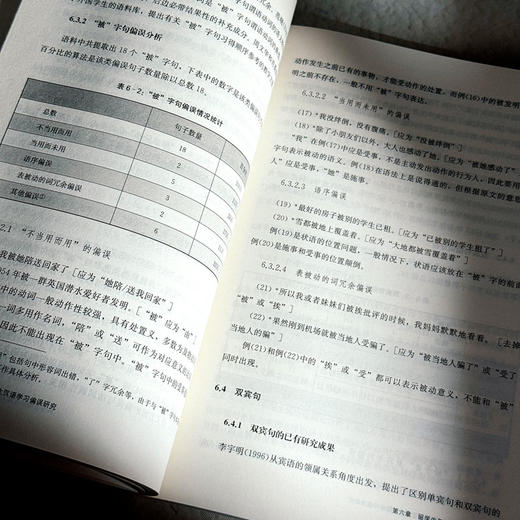 中国学生的语料库，提出有关"被"字句习得顺序参考的教学
6.3.2 "被"字句偏误分析
语料中共提取出 18 个"被"字句，下表中的数字是该类偏误的
百分比的算法是该类偏误句子数量除以总数 18。
表 6-2："被"字句偏误情况统计
句子数量
总数 18
不当用而用 2
当用而未用 5
语序偏误 2
表被动的词冗余偏误 3
其他偏误① 6
2.1 "不当用而用"的偏误
我被她陪送回家了［应为"她陪/送我回家"］
954年被一群英国潜水爱好者发明。［"被"应为"由"］
中的动词一般动作性较强，具有处置义，多数为
一词多用作名词，"陪"或"送"可作为对应意义的
因此不能出现在"被"字句中。"被"字句中的
"包括句中形容词出错，"了"字冗余等，由于与"被"字
作具体分析。
汉语学习偏误研究
动作发生之前已有的事物，才能受动作的处置，而例(16)中的被发明
明之前不存在，一般不用"被"字句表达。
6.3.2.2 "当用而未用"的偏误
(17) *我没绊倒，没有腹痛。［应为"没被绊倒"］
(18) *除了小朋友们以外，大人也感动了她。［应为"被她感动了"
"我"在例(17)中应是受事，不是主动发出动作的行为人，因此要用
字句表示被动的语义。例(18)在语法上是说得通的，但根据原文的意思
人"应是受事，"她"是施事。
6.3.2.3 语序偏误
(19) *最好的房子被别的学生已租。［应为"已被别的学生租了"］
(20) *雪都被地上覆盖着。［应为"大地都被雪覆盖着"］
例(19)是状语的位置问题，一般情况下，状语应该放在"被"字的前面
例(20)是施事和受事的位置颠倒。
6.3.2.4 表被动的词冗余偏误
(21) *所以我或者妹妹们被挨批评的时候，我妈妈默默地看看。［去掉
"被"或"挨"］
(22) *果然刚到机场就被当地人受骗了。［应为"被当地人骗了"或"受了
当地人的骗"］
例(21)和例(22)中的"挨"或"受"都可以表示被动意义，不能和"被"
同时出现。
6.4 双宾句
6.4.1 双宾句的已有研究成果
李宇明(1996)从宾语的领属关系角度出发，提出了区别单宾句和双宾句的
第六章 留学生